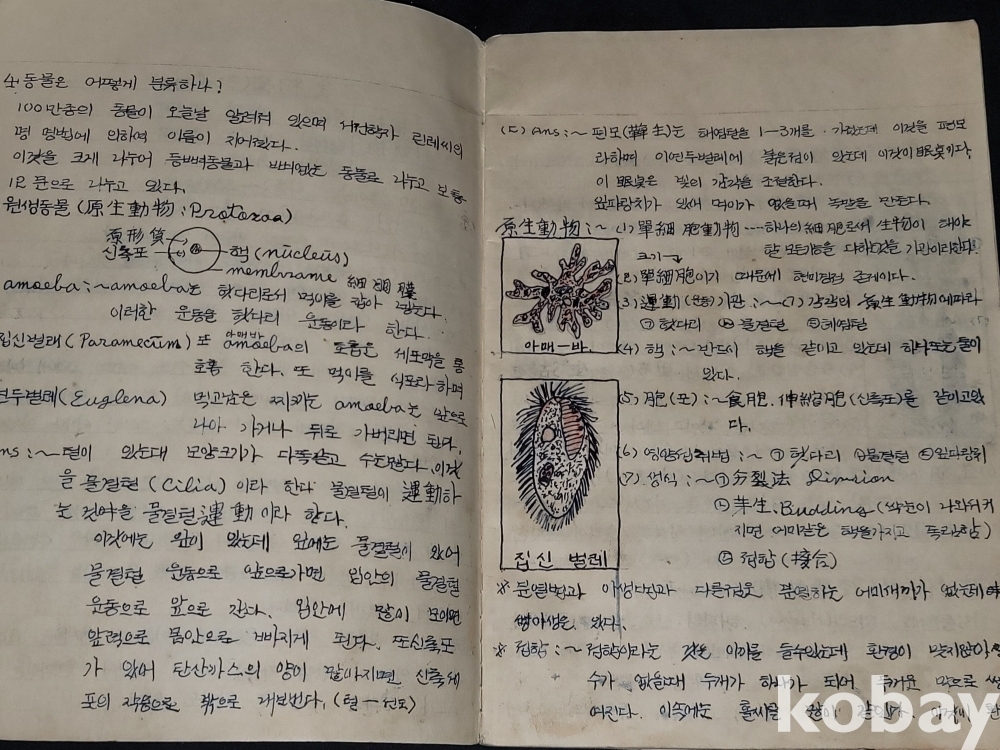 4) 동물은 어떻게 분류하나?
100만종의 동물이 오늘날 알려져 있으며 린레씨의
명명법에 의하여 이름이 지어졌다.
이것을 크게 나누어 등뼈동물과 동물로 나누고 보통
12문으로 나누고 있다.
원생동물 (原生動物 : Protozoa)
原形質
신축포
핵 (nucleus)
membrame 細胞膜
amoeba : ~ amoeba는 헛다리로서 먹이를 잡아 먹는다.
이러한 운동을 헛다리 운동이라 한다.
집신벌레 (Paramecium) 또 amoeba의 호흡은 세포막을 통
아매바
호흡 한다. 또 먹이를 식포라 하며
연두벌레(Euglena) 먹고남은 찌꺼는 amoeba는 앞으로
나아 가거나 뒤로 가버리면 된다.
ns : ~ 털이 있는대 모양크기가 다똑같고 수는많다. 이것
을 물결털 (Cilia) 이라 한다 물결털이 運動하
는 것을 물결털 運動이라 한다.
이것에는 입이 있는데 입에는 물결털이 있어
물결털 운동으로 앞으로가면 입안의 물결털
운동으로 앞으로 간다. 입안에 많이 모이면
압력으로 몸안으로 빠지게 된다. 또신축포
가 있어 탄산가스의 양이 많아지면 신축세
포의 작용으로 밖으로 내보낸다. (털-선모)
(ㄷ) Ans : ~ 편모(鞭毛)는 헤엄털을 1-3개를 가졌는데 이것을 편모
라하며 이연두벌레에 붉은점이 있는데 이것이 眼点이다.
이 眼点은 빛의 감각을 조절한다.
엽파랑치가 있어 먹이가 없을때 녹말을 만든다.
原生動物 : ~ (1) 單細胞動物 --- 하나의 細胞로서 生物이 해야
할 모든기능을 다하였을 기관이리한다.
크기
(2) 單細胞이기 때문에 현미경적 존재이다.
(3) 運動(운동)기관 : ~ 각각의 原生動物에따라
㉠ 헛다리 ㉡ 물결털 ㉢ 헤엄털
아매-바
(4) 핵 : ~ 반드시 핵을 같이고 있는데 하나또는 둘이
있다.
(5) 胞(포) : ~ 食胞, 伸縮胞(신축포)를 같이고있
다.
(6) 영양섭취법 : ~ ㉠ 헛다리 ㉡ 물결털 ㉢ 엽파랑치
(7) 생식 : ~ ㉠ 分裂法
㉡ 芽生. Budding (싹눈이 나와뒤커
지면 어미같은 핵을가지고 독립함)
㉢ 접합 (接合)
집신 벌레
※ 분열법과 아생법과 다른점은 분열하는 어미새끼가 없는데
있다.
※ 접합 : ~ 접합이라는 것은 이끼를 들수있는데 환경이 맞지않아
수가 없을때 두개가 하나가 되어 두꺼운 막으로
여진다. 이속에는 홀씨를
kobay